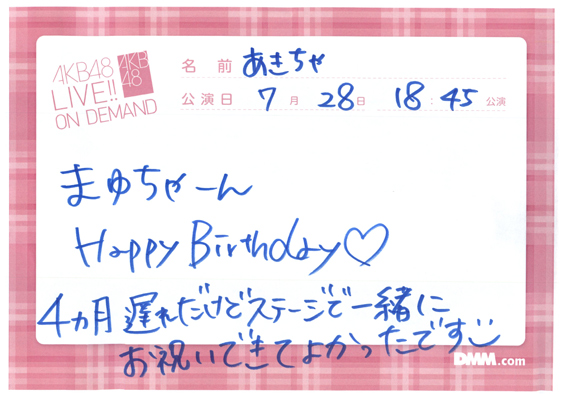 AKB48
LIVE!!
ON DEMAND
AKB
48
名前 あきちゃ
公演日 7月 28日 18:45 公演
まゆちゃーん
Happy Birthday♡
4ヵ月遅れだけどステージで一緒に
お祝いできてよかったです
DMM.com